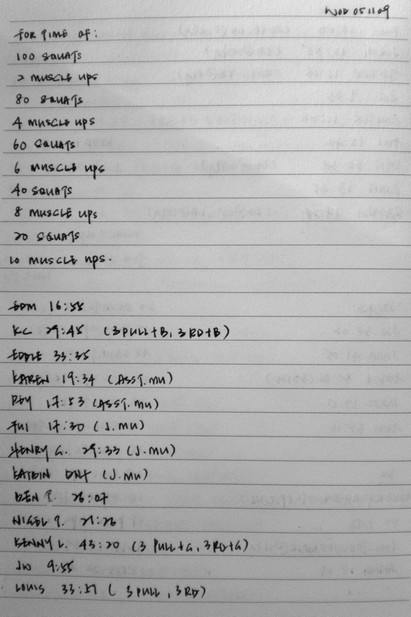 WOD 051109
FOR TIME OF:
100 SQUATS
2 MUSCLE UPS
80 SQUATS
4 MUSCLE UPS
60 SQUATS
6 MUSCLE UPS
40 SQUATS
8 MUSCLE UPS
20 SQUATS
10 MUSCLE UPS.
16:55
KC 29:45 (3 PULL+B, 3 RD+B)
EDDIE 33:35
KAREN 19:34 (ASST. MU)
ROY 17:53 (ASST. MU)
17:30 (J. MU)
HENRY G. 29:33 (J. MU)
DNF (J. MU)
BEN T. 26:07
NIGEL T. 21:26
KENNY L. 43:20 (3 PULL+G, 3 RD+G)
JW 9:55
LOUIS 33:51 (3 PULL, 3 RD)